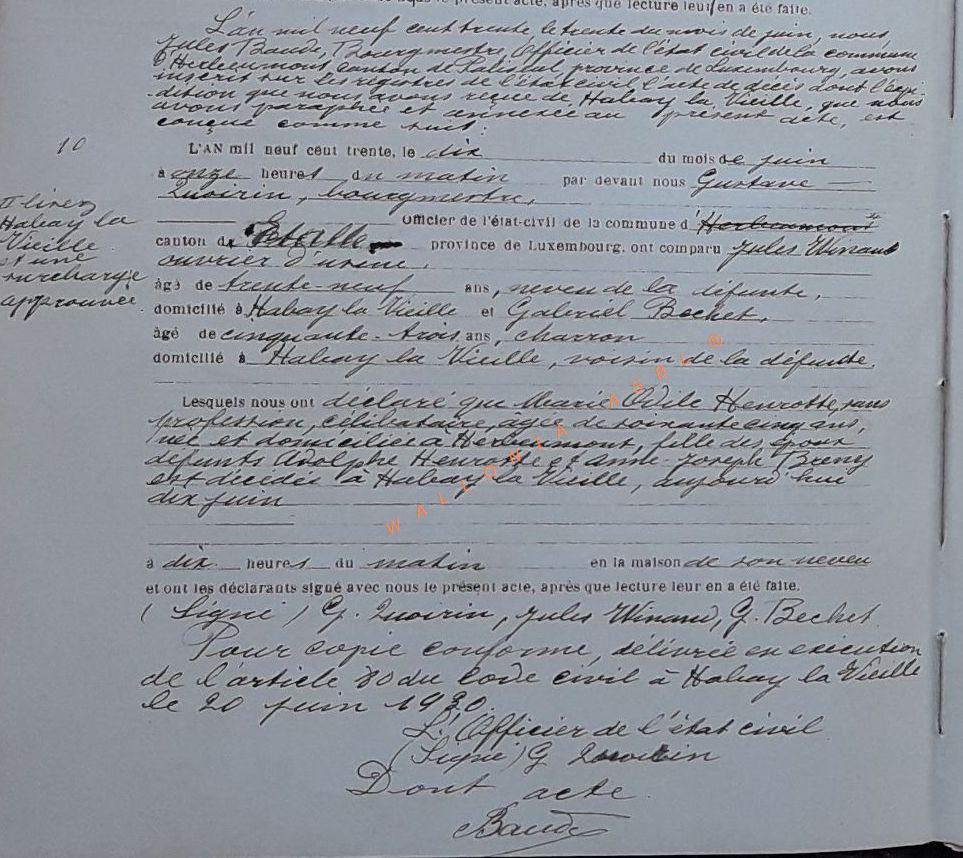 présent acte, après que lecture leur en a été faite.
L'an mil neuf cent trente, le trente du mois de juin, nous
Jules Baude, Bourgmestre, Officier de l'état civil de la commune
d'Herbeumont, canton de Paliseul, province de Luxembourg, avons
inscrit sur les registres de l'état civil l'acte de décès dont l'expé-
dition que nous avons reçue de Habay la Vieille, que nous
avons paraphée et annexée au présent acte, est
conçue comme suit:
10
L'AN mil neuf cent trente, le dix du mois de juin
à onze heures du matin par devant nous Gustave
Quoirin, bourgmestre,
Officier de l'état-civil de la commune d'Herbeumont
canton d'Etalle province de Luxembourg, ont comparu Jules Winand
ouvrier d'usine,
âgé de trente-neuf ans, neveu de la défunte,
domicilié à Habay la Vieille et Gabriel Bechet,
âgé de cinquante-trois ans, charron
domicilié à Habay la Vieille, voisin de la défunte,
lirez
Habay la
Vieille
et une
surcharge
approuvée
Lesquels nous ont déclaré que Marie Odile Henrotte, sans
profession, célibataire, âgée de soixante cinq ans,
née et domiciliée à Herbeumont, fille des époux
défunts Adolphe Henrotte et Anne-Joseph
est décédée à Habay la Vieille, aujourd'hui
dix juin
à dix heures du matin en la maison de son neveu
et ont les déclarants signé avec nous le présent acte, après que lecture leur en a été faite.
(Signé) G. Quoirin, Jules Winand, G. Bechet.
Pour copie conforme, délivrée en exécution
de l'article 80 du Code civil à Habay la Vieille
le 20 juin 1930.
L'Officier de l'état civil
(Signé) G Quoirin
Dont acte.
Baude
WALLONIA ASBL ©